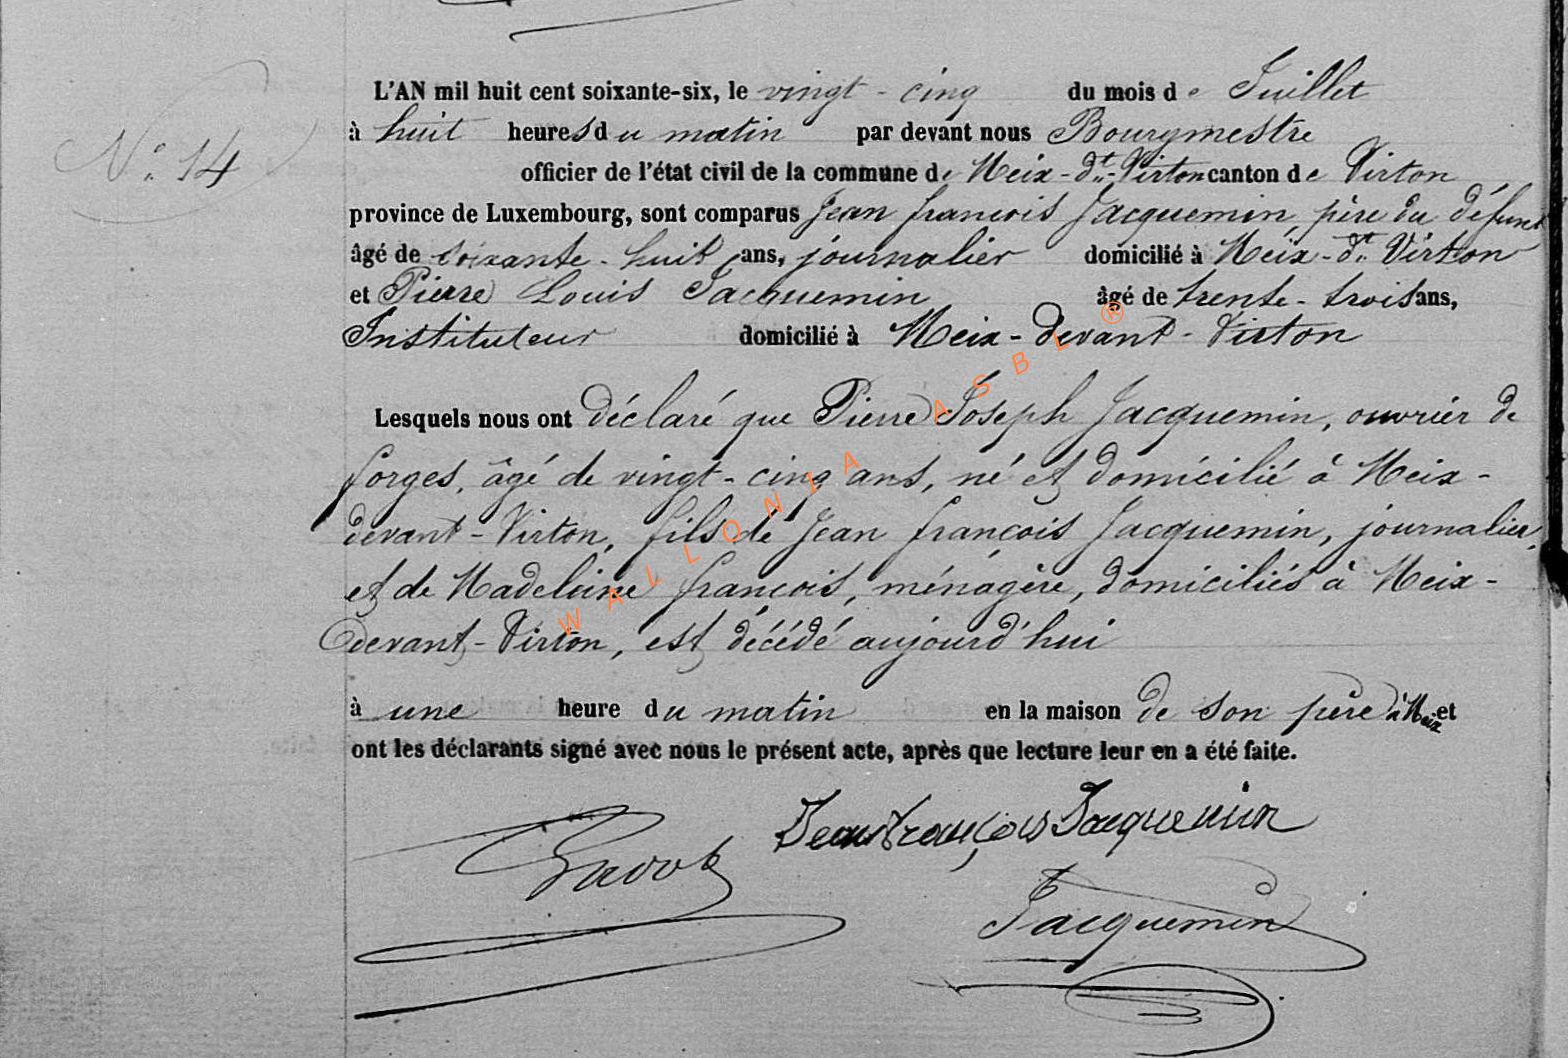 N° 14
L'AN mil huit cent soixante-six, le vingt-cinq du mois de Juillet
à huit heures du matin par devant nous Bourgmestre
officier de l'état civil de la commune de Meix-dt-Virton canton de Virton
province de Luxembourg, sont comparus Jean françois Jacquemin, père du défunt
âgé de soixante-huit ans, journalier domicilié à Meix-dt Virton
et Pierre Louis Jacquemin âgé de trente-trois ans,
Instituteur domicilié à Meix-devant-Virton
Lesquels nous ont déclaré que Pierre Joseph Jacquemin, ouvrier de
forges, âgé de vingt-cinq ans, né et domicilié à Meix-
devant-Virton, fils de Jean françois Jacquemin, journalier,
et de Madeleine françois, ménagère, domiciliés à Meix-
devant-Virton, est décédé aujourd'hui
à une heure du matin en la maison de son père à Meix et
ont les déclarants signé avec nous le présent acte, après que lecture leur en a été faite.
Jean françois Jacquemin
Jacquemin
WALLONIA ASBL ®